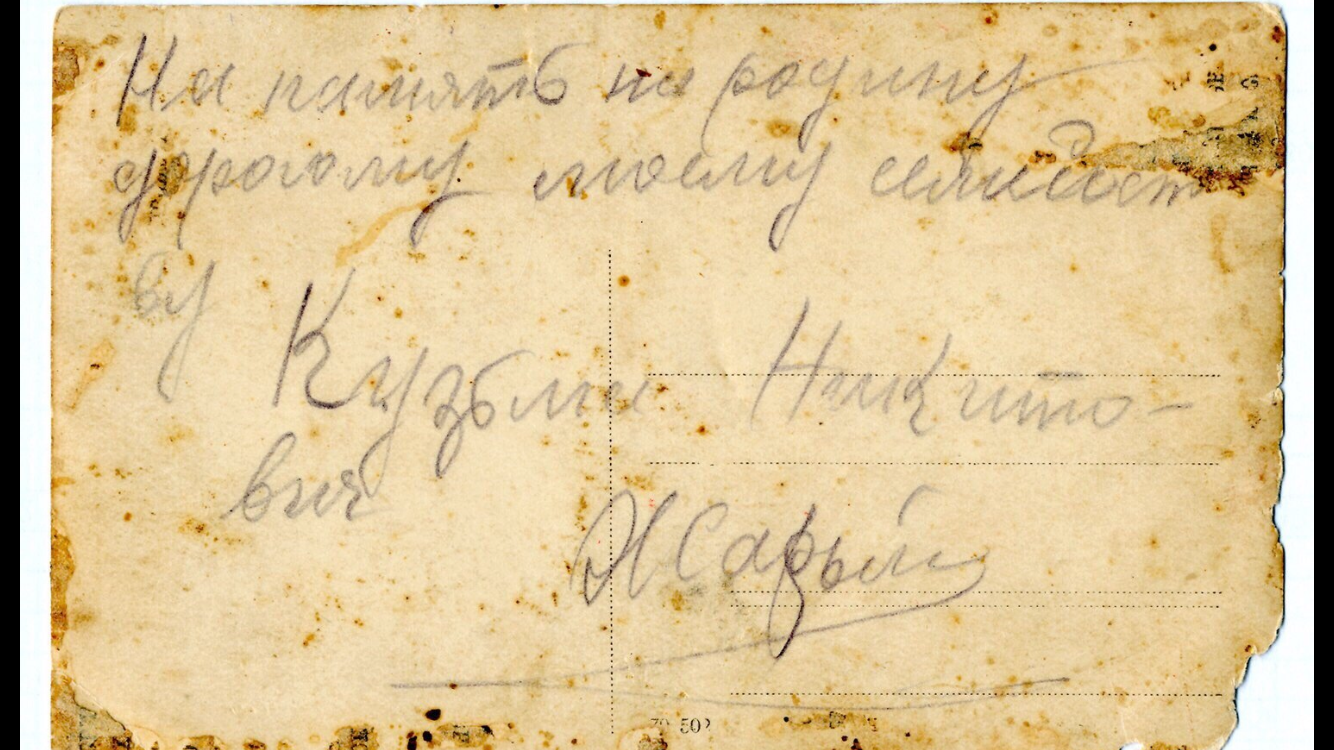 На память на родину
дорогому моему семейст
ву
Кузьми Никито-
вич